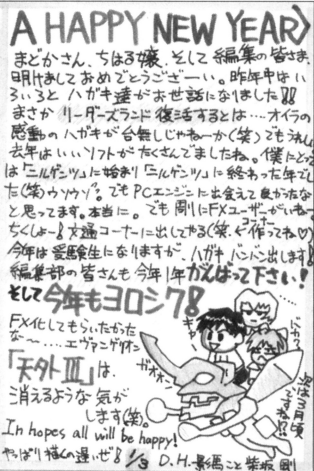 A HAPPY NEW YEAR
まどかさん、ちはる嬢、そして編集の皆さま
明けましておめでとうございーい。昨年中はい
ろいろとハガキ達がお世話になりました!!
まさかリーダーズランド復活するとは…オイラの
感動のハガキが台無しじゃねーか(笑)でもうれしい
去年はいいソフトがたくさんでましたね。僕にとって
は「ニルゲンツ」に始まり「ニルゲンツ」に終わった年でし
た(笑)ウソウソ。でもPCエンジンに出会えて良かったな
と思ってます。本当に。でも周りにFXユーザーがいねー
ちくしょー!文通コーナーに出してやる(笑、作ってね♡)
コーナー
今年は受験生になりますが、ハガキバンバン出します!
編集部の皆さんも今年1年がんばって下さい!
そして今年もヨロシク!
FX化してもらいたかった
な〜…エヴァンゲリオン
「天外III」は、
消えるような気が
します(笑)。
In hopes all will be happy!
やっぱり描くの遅いぜ! 1/3 D.H.影馬こと柴坂 剛
ギャー
ガオオ
次は3月頃
ですね!?